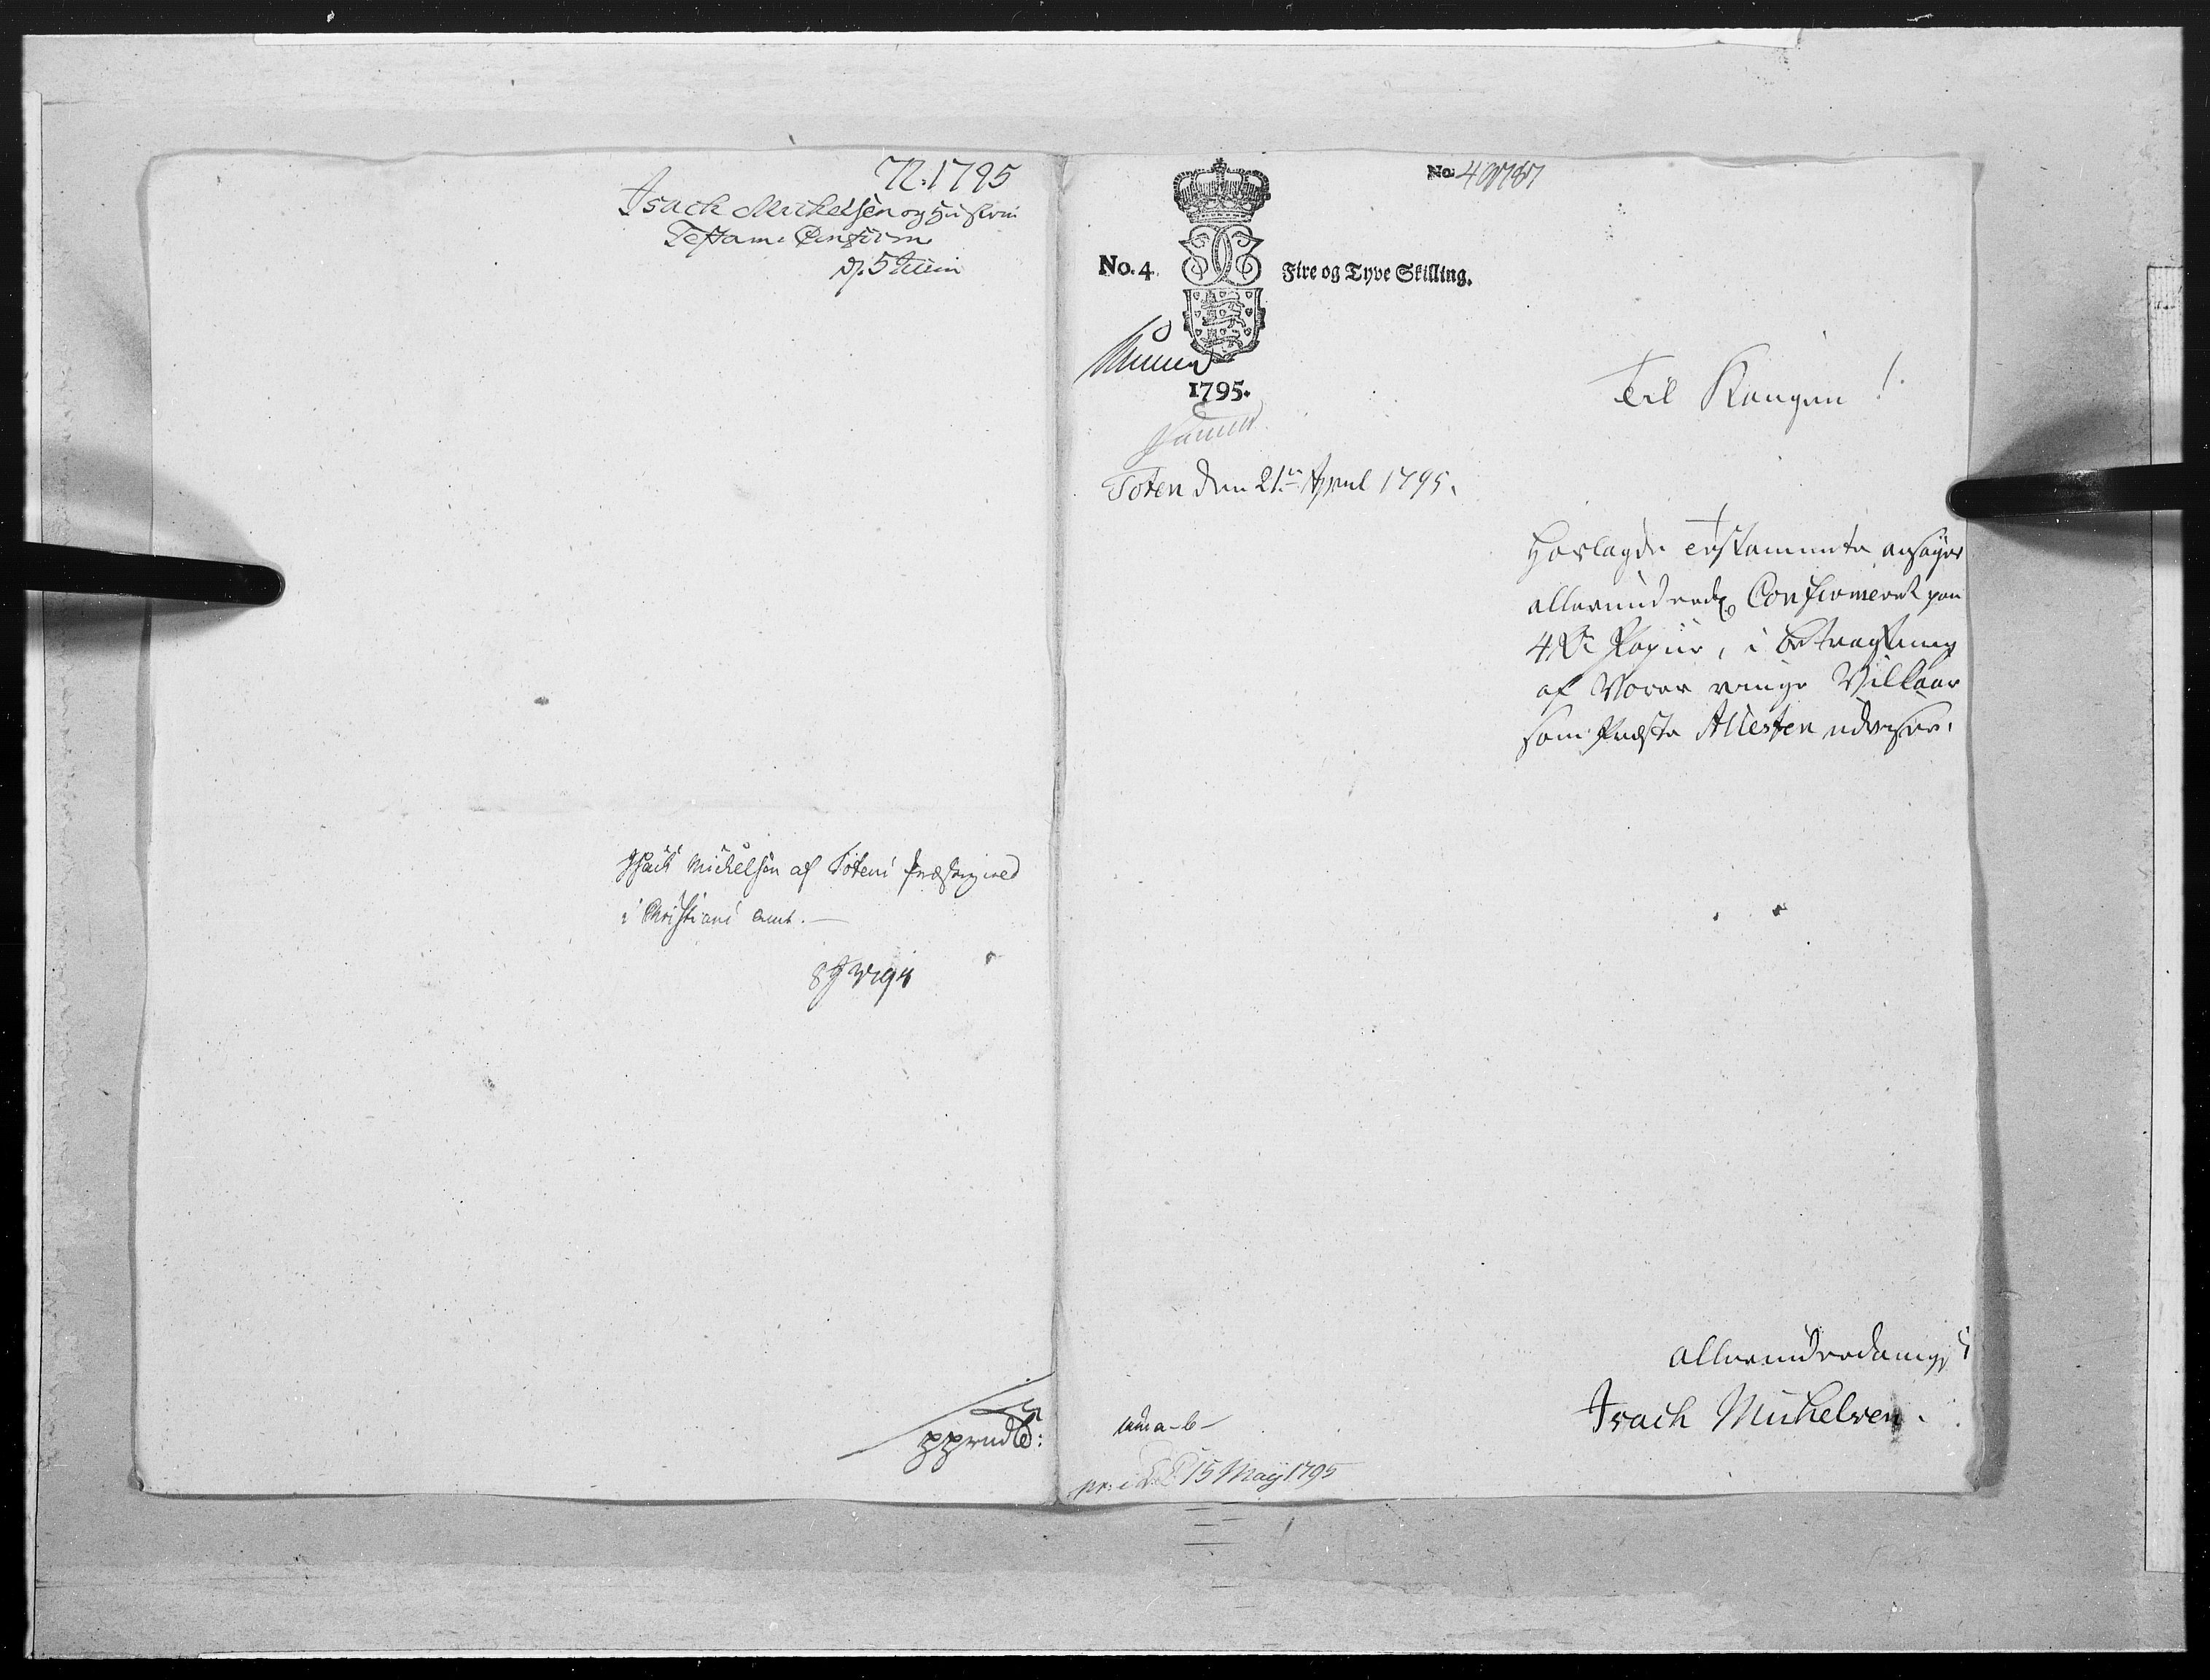 72. 1795
Isach Michelsen og Hustrue
Testam: Confirm
d. 5 Juin
Isach Michelsen af Totens Præstegield
i Christians Amt.
No.
No. 4
Fire og Tyve Skilling.
1795.
Toten den 21de April 1795.
Til Kongen!
Hoslagde Testamente ansøges
allerunderdg Confirmeret paa
Papiir, i Betragtning
af Vores ringe Vilkaar
som Præste Attesten udviser.
allerunderdanigst
Isach Michelsen.
pr: i D: C: 15 May 1795